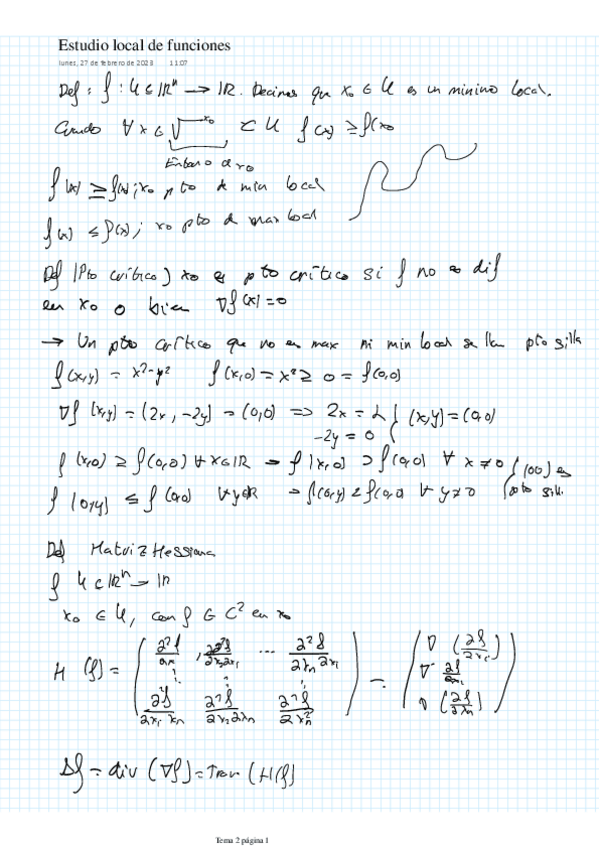 Estudio local de funciones
lunes, 27 de febrero de 2023 11:07
Def: f: U ⊆ ℝⁿ → ℝ. Decimos que x₀ ∈ U es un minimo local.
Cuando ∀ x ∈ V^{x₀} ⊂ U f(x) ≥ f(x₀
Entorno de x₀
f(x) ≥ f(x₀); x₀ pto de min local
f(x) ≤ f(x₀); x₀ pto de max local
Def (Pto crítico) x₀ es pto crítico si f no es dif
en x₀ o bien ∇f(x)=0
→ Un pto crítico que no es max ni min local se llama pto silla
f(x,y) = x²-y² f(x,0) = x² ≥ 0 = f(0,0)
∇f(x,y) = (2x, -2y) = (0,0) => 2x = 0 } (x,y) = (0,0)
-2y = 0
f(x,0) ≥ f(0,0) ∀ x ∈ ℝ → f(x,0) > f(0,0) ∀ x ≠ 0 } (0,0) es
f(0,y) ≤ f(0,0) ∀ y ∈ ℝ → f(0,y) < f(0,0) ∀ y ≠ 0 pto sill.
Def Matriz Hessiana
f U ⊂ ℝⁿ → ℝ
x₀ ∈ U, con f ∈ C² en x₀
H (f) = ( ∂²f/∂x₁ , ∂²f/∂x₂∂x₁ ... ∂²f/∂xₙ∂x₁ ) = ( ∇ (∂f/∂x₁) )
⋮ ⋮ ⋮ ∇ ∂f/∂x₂
∂²f/∂x₁ xₙ ∂²f/∂x₂∂xₙ ∂²f/∂xₙ² ∇ (∂f/∂xₙ)
Δf = div (∇f) = Traz (H(f)
Tema 2 página 1